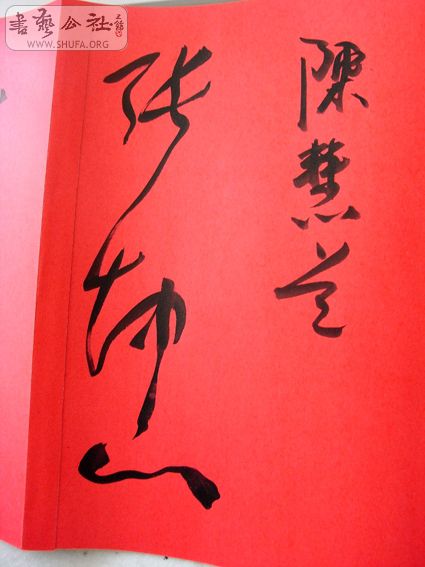 書藝公社
WWW.SHUFA.ORG
陳慧兰
张坤山